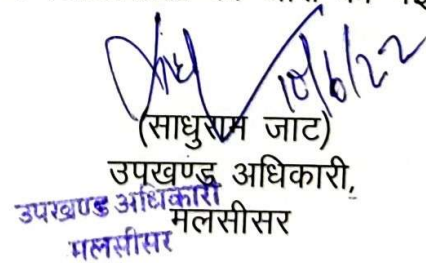 10/6/22
(साधुराम जाट)
उपखण्ड अधिकारी,
मलसीसर
उपखण्ड अधिकारी
मलसीसर